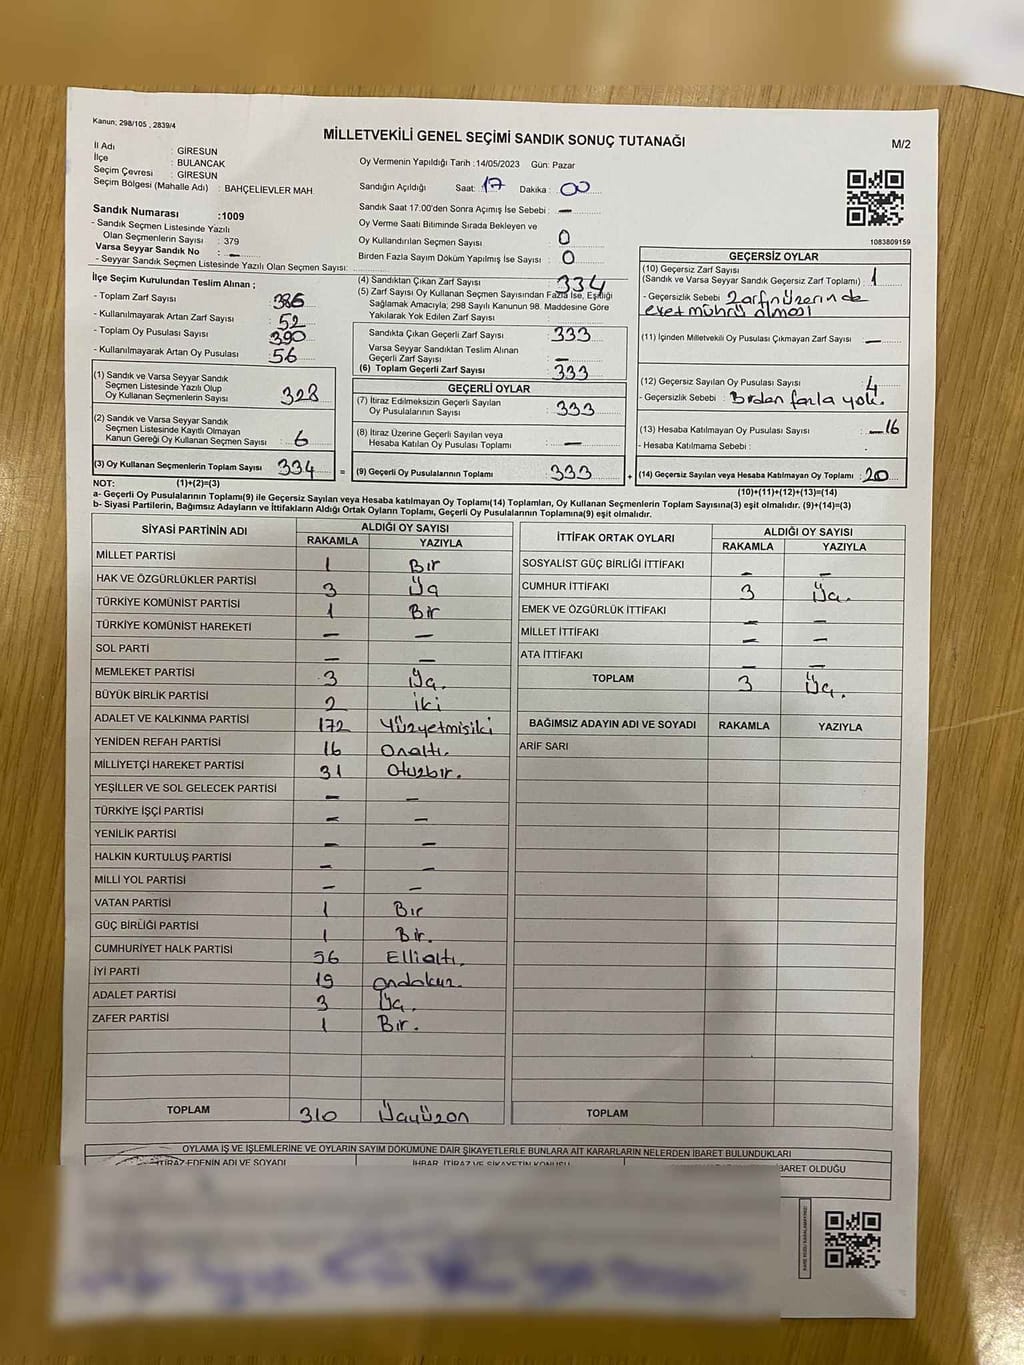 Kanun; 298/105 , 2839/4
MİLLETVEKİLİ GENEL SEÇİMİ SANDIK SONUÇ TUTANAĞI
M/2
İl Adı : GİRESUN
İlçe : BULANCAK
Seçim Çevresi : GİRESUN
Seçim Bölgesi (Mahalle Adı) : BAHÇELİEVLER MAH.
Sandık Numarası :1009
- Sandık Seçmen Listesinde Yazılı
Olan Seçmenlerin Sayısı : 379
Varsa Seyyar Sandık No : –
- Seyyar Sandık Seçmen Listesinde Yazılı Olan Seçmen Sayısı:
Oy Vermenin Yapıldığı Tarih :14/05/2023 Gün: Pazar
Sandığın Açıldığı Saat: 17 Dakika : 00
Sandık Saat 17:00'den Sonra Açımış İse Sebebi : –
Oy Verme Saati Bitiminde Sırada Bekleyen ve
Oy Kullandırılan Seçmen Sayısı : 0
Birden Fazla Sayım Döküm Yapılmış İse Sayısı : 0
1083809159
İlçe Seçim Kurulundan Teslim Alınan ;
- Toplam Zarf Sayısı : 386
- Kullanılmayarak Artan Zarf Sayısı : 52
- Toplam Oy Pusulası Sayısı : 390
- Kullanılmayarak Artan Oy Pusulası : 56
(1) Sandık ve Varsa Seyyar Sandık
Seçmen Listesinde Yazılı Olup
Oy Kullanan Seçmenlerin Sayısı : 328
(2) Sandık ve Varsa Seyyar Sandık
Seçmen Listesinde Kayıtlı Olmayan
Kanun Gereği Oy Kullanan Seçmen Sayısı : 6
(3) Oy Kullanan Seçmenlerin Toplam Sayısı : 334
(4) Sandıktan Çıkan Zarf Sayısı : 334
(5) Zarf Sayısı Oy Kullanan Seçmen Sayısından Fazla İse, Eşitliği
Sağlamak Amacıyla; 298 Sayılı Kanunun 98. Maddesine Göre
Yakılarak Yok Edilen Zarf Sayısı :
Sandıkta Çıkan Geçerli Zarf Sayısı : 333
Varsa Seyyar Sandıktan Teslim Alınan
Geçerli Zarf Sayısı : –
(6) Toplam Geçerli Zarf Sayısı : 333
GEÇERLİ OYLAR
(7) İtiraz Edilmeksizin Geçerli Sayılan
Oy Pusulalarının Sayısı : 333
(8) İtiraz Üzerine Geçerli Sayılan veya
Hesaba Katılan Oy Pusulası Toplamı : –
= (9) Geçerli Oy Pusulalarının Toplamı : 333
GEÇERSİZ OYLAR
(10) Geçersiz Zarf Sayısı
(Sandık ve Varsa Seyyar Sandık Geçersiz Zarf Toplamı) : 1
- Geçersizlik Sebebi : Zarfın üzerinde
evet mührü olması
(11) İçinden Milletvekili Oy Pusulası Çıkmayan Zarf Sayısı : –
(12) Geçersiz Sayılan Oy Pusulası Sayısı : 4
- Geçersizlik Sebebi : Birden fazla
(13) Hesaba Katılmayan Oy Pusulası Sayısı : –16
- Hesaba Katılmama Sebebi :
+ (14) Geçersiz Sayılan veya Hesaba Katılmayan Oy Toplamı : 20
NOT: (1)+(2)=(3)
(10)+(11)+(12)+(13)=(14)
a- Geçerli Oy Pusulalarının Toplamı(9) ile Geçersiz Sayılan veya Hesaba katılmayan Oy Toplamı(14) Toplamları, Oy Kullanan Seçmenlerin Toplam Sayısına(3) eşit olmalıdır. (9)+(14)=(3)
b- Siyasi Partilerin, Bağımsız Adayların ve İttifakların Aldığı Ortak Oyların Toplamı, Geçerli Oy Pusulalarının Toplamına(9) eşit olmalıdır.
SİYASİ PARTİNİN ADI ALDIĞI OY SAYISI
RAKAMLA YAZIYLA
MİLLET PARTİSİ 1 Bir
HAK VE ÖZGÜRLÜKLER PARTİSİ 3 Üç
TÜRKİYE KOMÜNİST PARTİSİ 1 Bir
TÜRKİYE KOMÜNİST HAREKETİ – –
SOL PARTİ – –
MEMLEKET PARTİSİ 3 Üç.
BÜYÜK BİRLİK PARTİSİ 2 iki
ADALET VE KALKINMA PARTİSİ 172 Yüzyetmişiki
YENİDEN REFAH PARTİSİ 16 Onaltı.
MİLLİYETÇİ HAREKET PARTİSİ 31 Otuzbir.
YEŞİLLER VE SOL GELECEK PARTİSİ – –
TÜRKİYE İŞÇİ PARTİSİ – –
YENİLİK PARTİSİ – –
HALKIN KURTULUŞ PARTİSİ – –
MİLLİ YOL PARTİSİ – –
VATAN PARTİSİ 1 Bir
GÜÇ BİRLİĞİ PARTİSİ 1 Bir.
CUMHURİYET HALK PARTİSİ 56 Ellialtı.
İYİ PARTİ 19 ondokuz.
ADALET PARTİSİ 3 Üç.
ZAFER PARTİSİ 1 Bir.
TOPLAM 310 Üçyüzon
İTTİFAK ORTAK OYLARI ALDIĞI OY SAYISI
RAKAMLA YAZIYLA
SOSYALİST GÜÇ BİRLİĞİ İTTİFAKI – –
CUMHUR İTTİFAKI 3 Üç.
EMEK VE ÖZGÜRLÜK İTTİFAKI – –
MİLLET İTTİFAKI – –
ATA İTTİFAKI – –
TOPLAM 3 Üç.
BAĞIMSIZ ADAYIN ADI VE SOYADI RAKAMLA YAZIYLA
ARİF SARI
TOPLAM
OYLAMA İŞ VE İŞLEMLERİNE VE OYLARIN SAYIM DÖKÜMÜNE DAİR ŞİKAYETLERLE BUNLARA AİT KARARLARIN NELERDEN İBARET BULUNDUKLARI
İTİRAZ EDENİN ADI VE SOYADI İHBAR, İTİRAZ VE ŞİKAYETİN KONUSU İBARET OLDUĞU